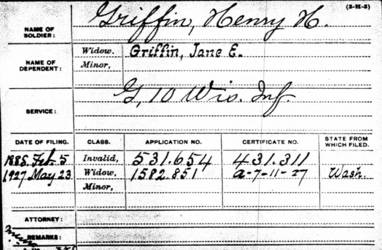 (3-H-3)
NAME OF SOLDIER: Griffin, Henry H.
NAME OF DEPENDENT: Widow, Griffin, Jane E.
Minor,
SERVICE: G, 10 Wis. Inf.
DATE OF FILING. CLASS. APPLICATION NO. CERTIFICATE NO. STATE FROM WHICH FILED.
1885 Feb. 5 Invalid, 531.654 431.311
1927 May 23 Widow, 1582.851 a-7-11-27 Wash.
Minor,
ATTORNEY:
REMARKS: